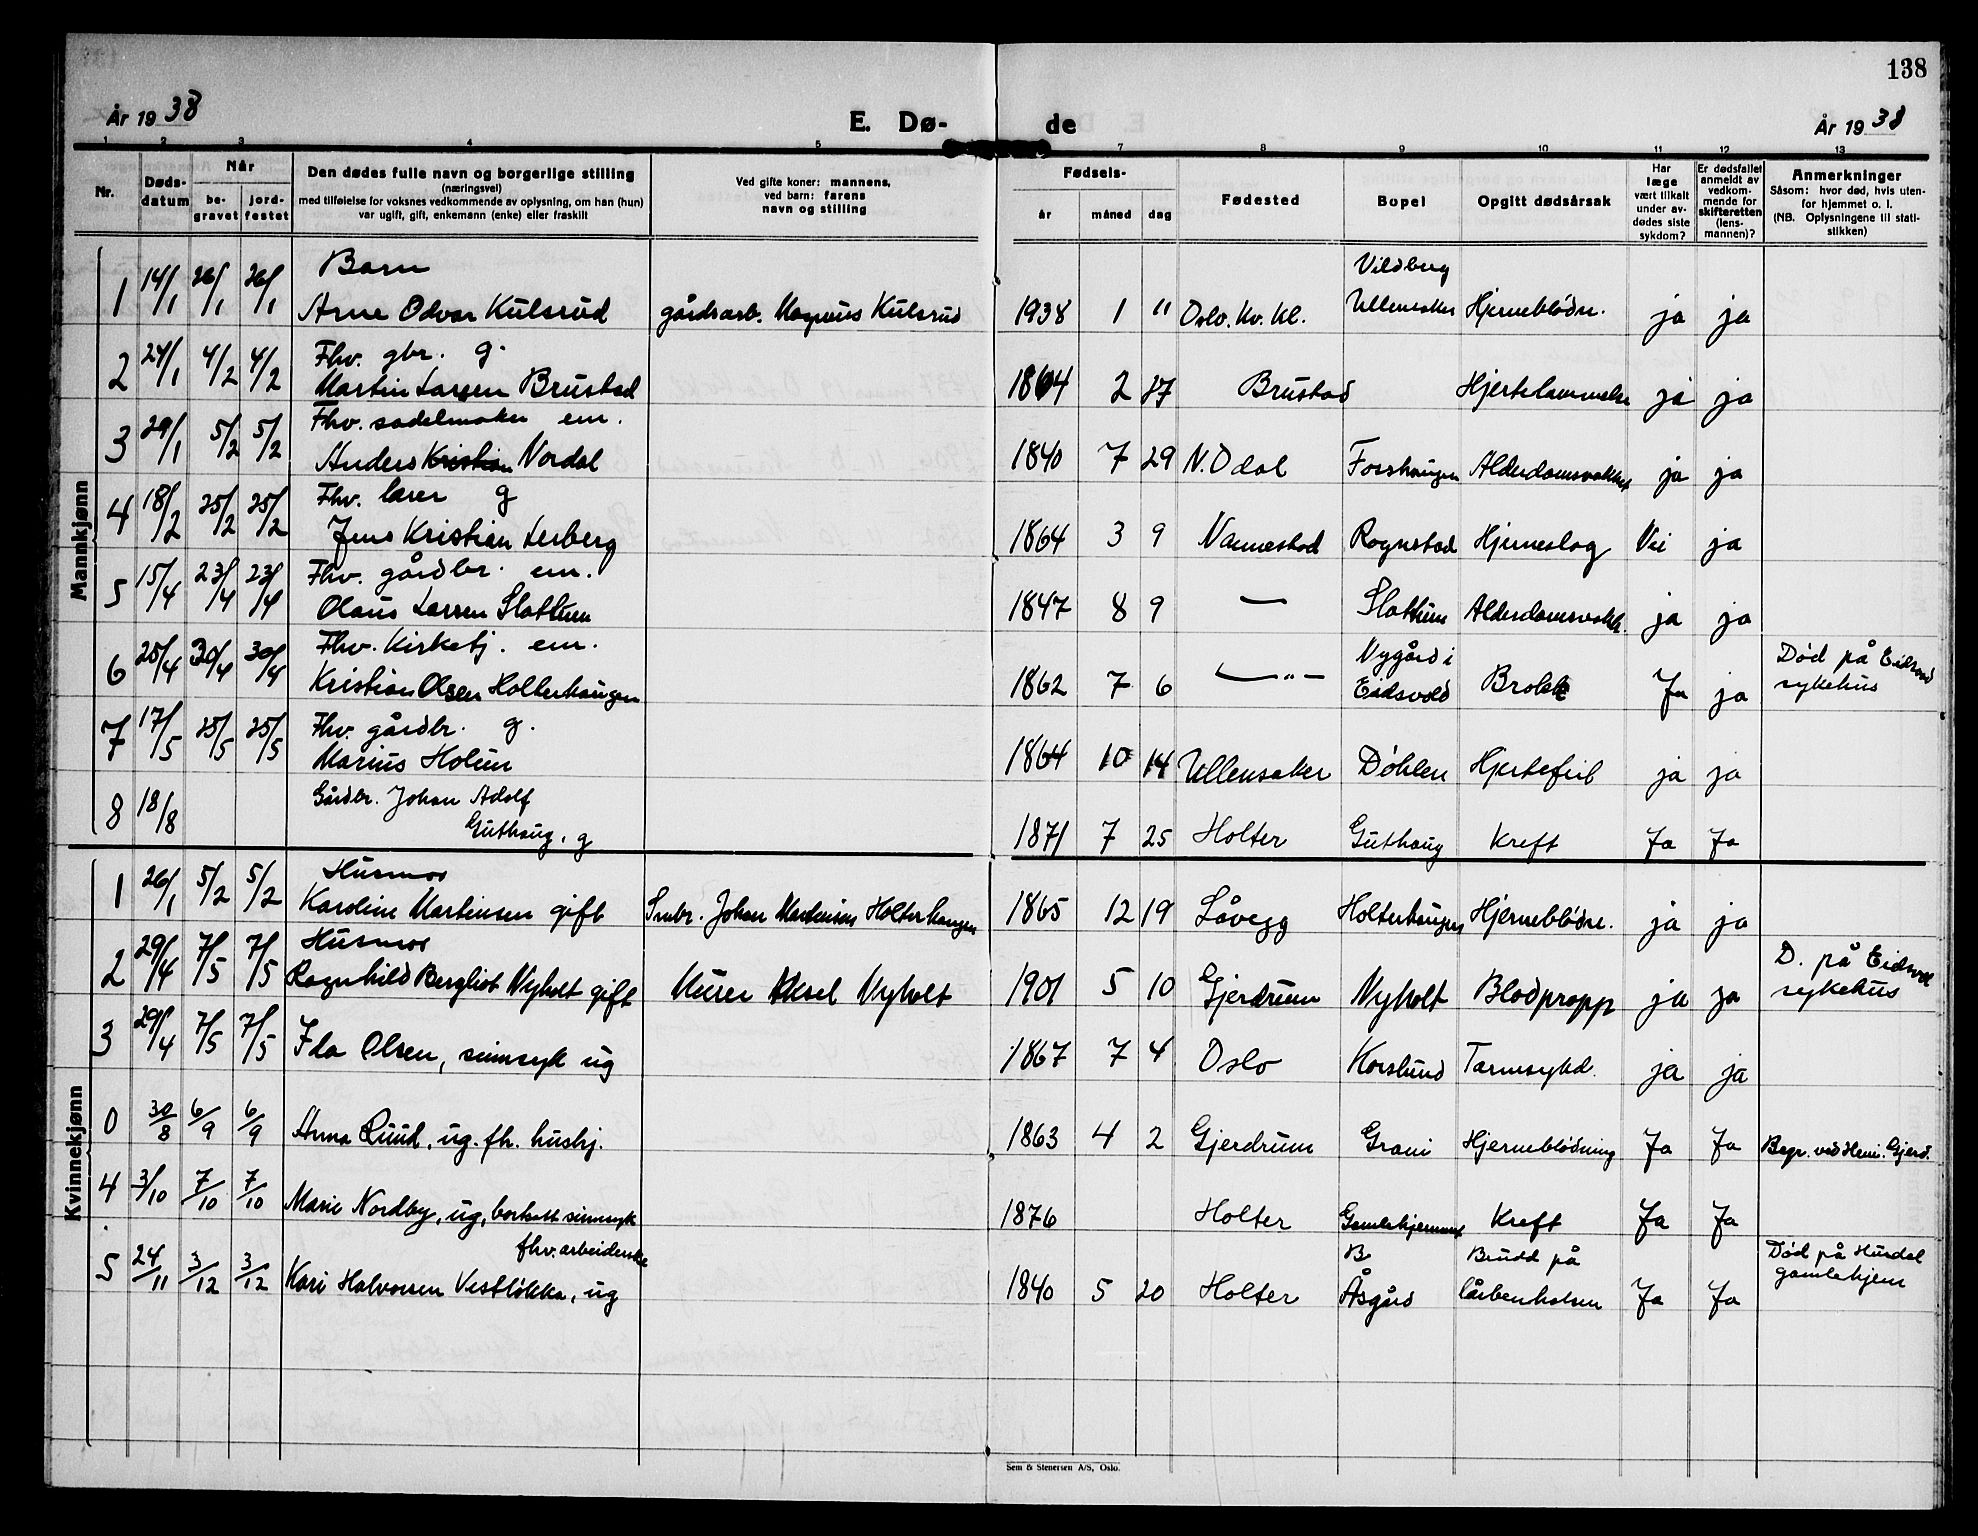 138
År 1938
E. Dø-
de
År 1938
1 2 3 4 5 7 8 9 10 11 12 13
Nr.
Døds-
datum
Når
be-
gravet
jord-
festet
Den dødes fulle navn og borgerlige stilling
(næringsvei)
med tilføielse for voksnes vedkommende av oplysning, om han (hun)
var ugift, gift, enkemann (enke) eller fraskilt
Ved gifte koner: mannens,
ved barn: farens
navn og stilling
Fødsels-
år måned dag
Fødested
Bopel
Opgitt dødsårsak
Har
læge
vært tilkalt
under av-
dødes siste
sykdom?
Er dødsfallet
anmeldt av
vedkom-
mende for
skifteretten
(lens-
mannen)?
Anmerkninger
Såsom: hvor død, hvis uten-
for hjemmet o. l.
(NB. Oplysningene til stati-
stikken)
Mannkjønn
Barn Vildberg
1 14/1 26/1 26/1 Arne Odvar Kulsrud gårdsarb. Magnus Kulsrud 1938 1 11 Oslo. Kv. Kl. Ullensaker Hjerneblødn. ja ja
Fhv. gbr. g.
2 24/1 4/2 4/2 Martin Larsen Brustad 1864 2 17 Brustad Hjertelammelse ja ja
Fhv. sadelmaker em.
3 29/1 5/2 5/2 Anders Kristian Nordal 1840 7 29 N. Odal Fosshaugen Alderdomsvakhet ja ja
Fhv. lærer g
4 18/2 25/2 25/2 Jens Kristian Lerberg 1864 3 9 Nannestad Rognstad Hjerneslag Nei ja
Fhv. gårdbr. em.
5 15/4 23/4 23/4 Olaus Larsen Slattum 1847 8 9 — Slattum Alderdomsvakh. ja ja
Fhv. Kirketj. em. Nygård i Død på Eidsvold
6 25/4 30/4 30/4 Kristian Olsen Holterhaugen 1862 7 6 —"— Eidsvold Brokk Ja ja sykehus
Fhv. gårdbr. g.
7 17/5 25/5 25/5 Marius Holum 1864 10 14 Ullensaker Døhlen Hjertefeil ja ja
Gårdbr. Johan Adolf
8 18/8 Guthaug, g 1871 7 25 Holter Guthaug Kreft Ja Ja
Kvinnekjønn
Husmor
1 26/1 5/2 5/2 Karoline Martinsen gift Smbr. Johan Martinsen Holterhaugen 1865 12 19 Låvegg Holterhaugen Hjerneblødn. ja ja
Husmor D. på Eidsvoll
2 29/4 7/5 7/5 Ragnhild Bergliot Nyholt gift Murer Aksel Nyholt 1901 5 10 Gjerdrum Nyholt Blodpropp ja ja sykehus
3 29/4 7/5 7/5 Ida Olsen, sinnsyk ug 1867 7 4 Oslo Korslund Tarmsykd. ja ja
0 30/8 6/9 6/9 Anna Ruud, ug. fh. hushj. 1863 4 2 Gjerdrum Grani Hjerneblødning Ja Ja Begr. ved Heni. Gjerd.
4 3/10 7/10 7/10 Marie Nordby, ug, bortsatt sinnsyk 1876 Holter Gamlehjemmet Kreft Ja Ja
fhv. arbeiderske B Brudd på Død på Hurdal
5 24/11 3/12 3/12 Kari Halvorsen Vestløkka, ug 1840 5 20 Holter Åsgård lårbenhalsen Ja Ja gamlehjem
Sem & Stenersen A/S, Oslo.